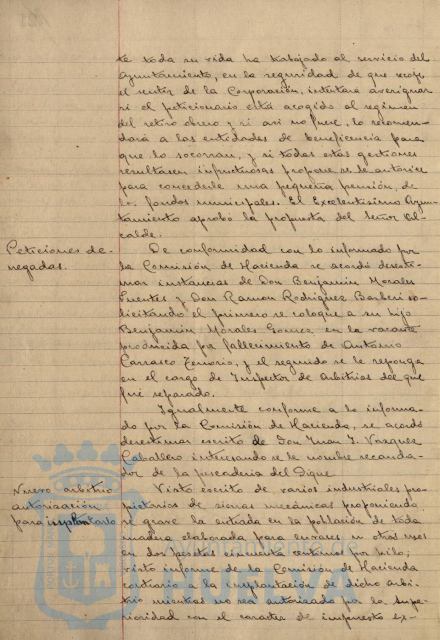 te toda su vida ha trabajado al servicio del
Ayuntamiento, en la seguridad de que recoje
el sentir de la Corporación, intentará averiguar
si el peticionario está acogido al regimen
del retiro obrero y si asi no fuere, lo recomen-
dará a las entidades de beneficencia para
que lo socorran, y si todas estas gestiones
resultasen infructuosas propone se le autorice
para concederle una pequeña pensión, de
los fondos municipales. El Excelentisimo Ayun-
tamiento aprobó la propuesta del Señor Al-
calde.
Peticiones de-
negadas.
De conformidad con lo informado por
la Comisión de Hacienda se acordó desesti-
mar instancias de Don Benjamin Morales
Fuentes y Don Ramon Rodriguez Barberi so-
licitando el primero se coloque a su hijo
Benjamin Morales Gomez en la vacante
producida por fallecimiento de Antonio
Carrasco Tenorio, y el segundo se le reponga
en el cargo de Inspector de Arbitrios del que
fué separado.
Igualmente conforme a lo informa-
do por la Comisión de Hacienda, se acordó
desestimar escrito de Don Juan J. Vazquez
Caballero interesando se le nombre recauda-
dor de la pescaderia del Dique.
Nuevo arbitrio
autorización
para implantarlo
Visto escrito de varios industriales pro-
pietarios de sierras mecánicas proponiendo
se grave la entrada en la población de toda
madera elaborada para envases u otros usos
en dos pesetas cincuenta centimos por kilo;
visto informe de la Comisión de Hacienda
contrario a la implantación de dicho arbi-
trio mientras no sea autorizado por la Su-
perioridad con el caracter de impuesto ex-